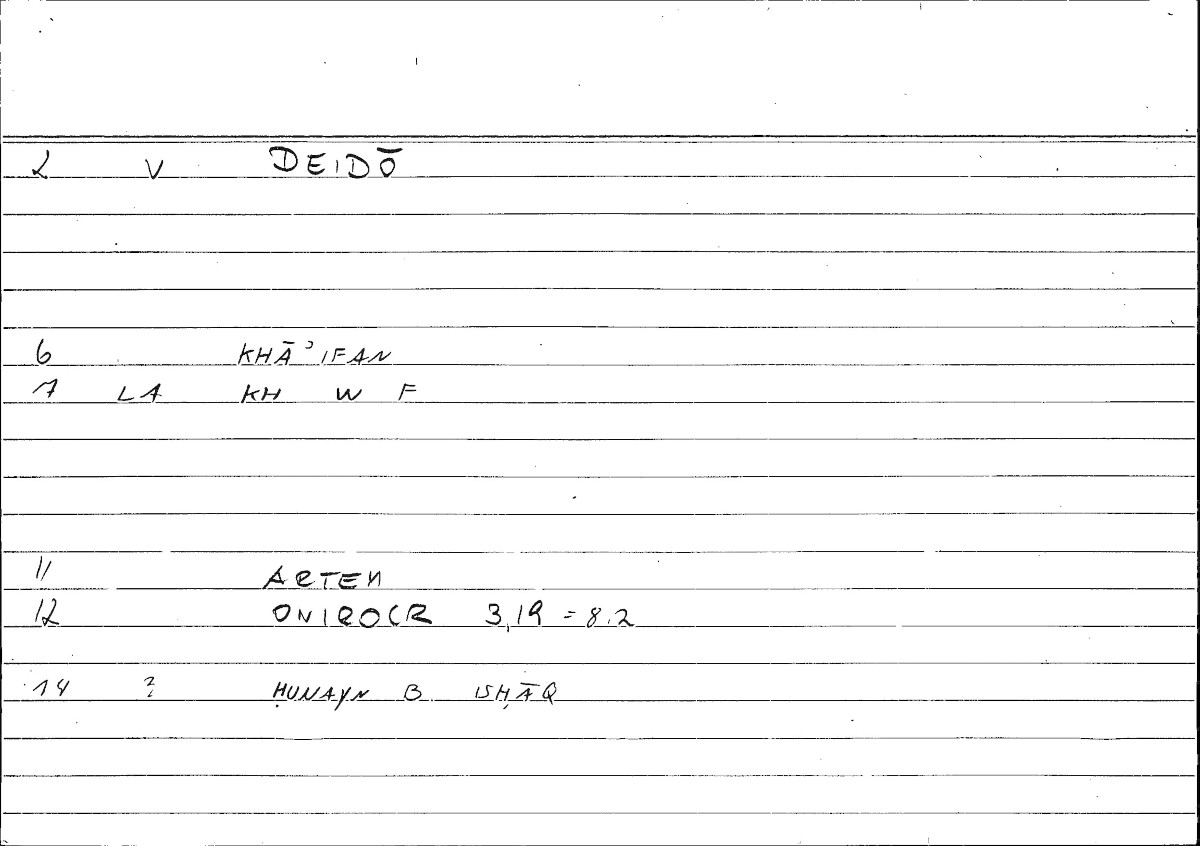 2 V DEIDŌ
6 KHĀʾIFAN
7 LA KH W F
11 ARTEM
12 ONIROCR 3,19 = 8.2
14 ? ḤUNAYN B ISḤĀQ